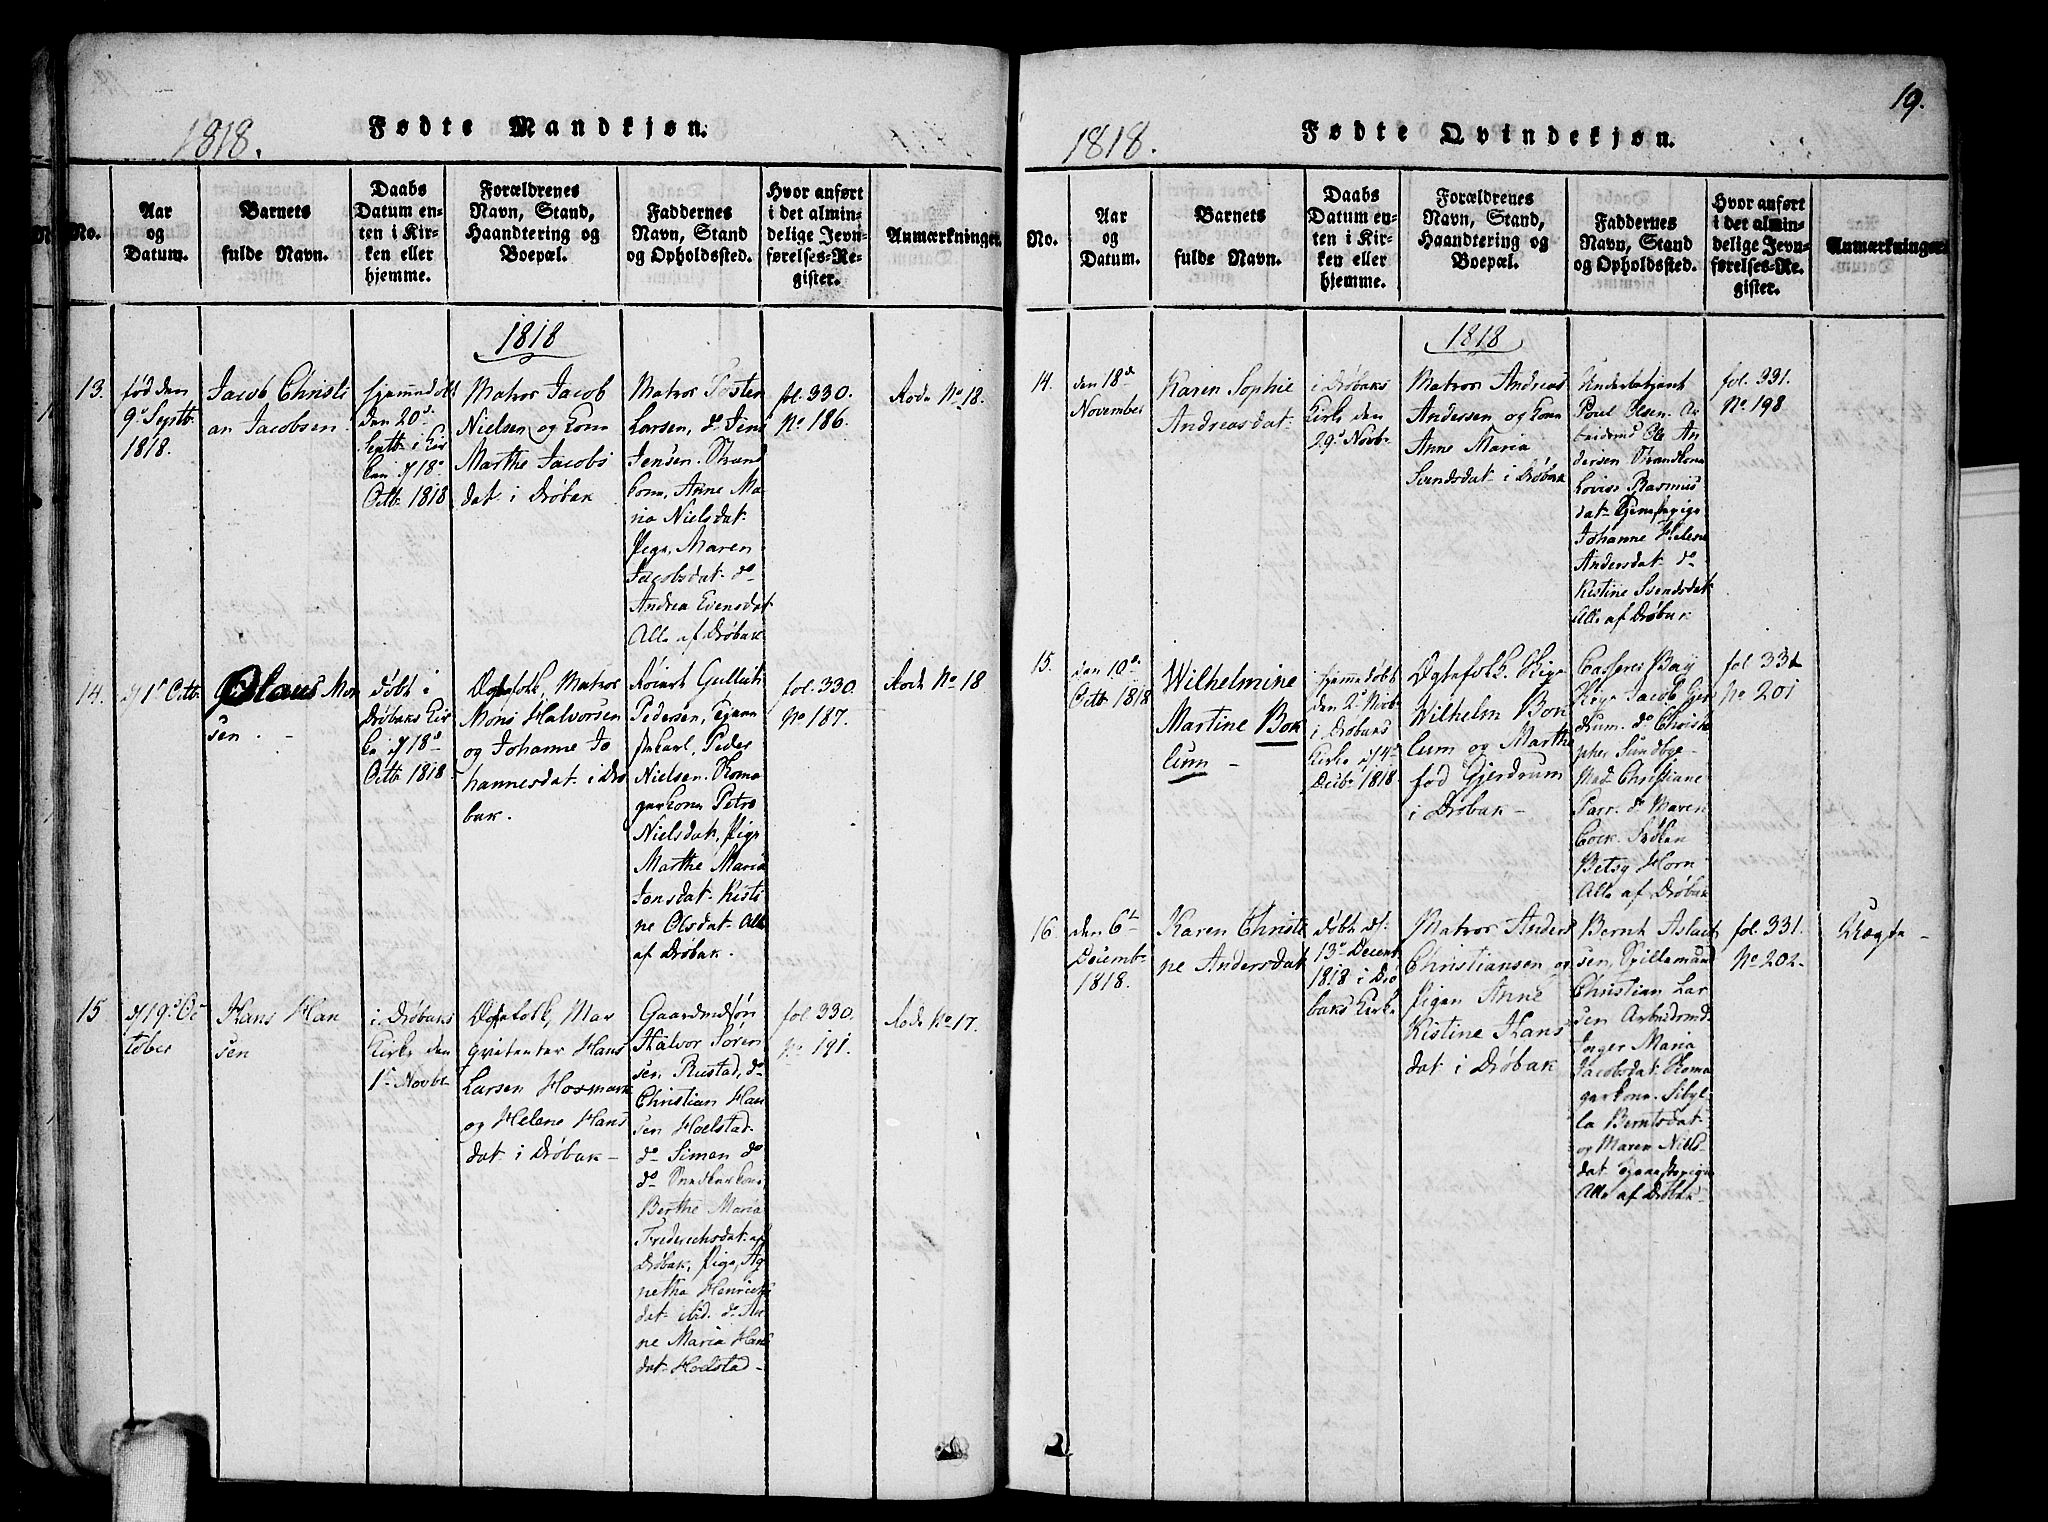 1818.
Fødte Mandkjøn.
No.
Aar
og
Datum.
Barnets
fulde Navn.
Daabs
Datum en-
ten i Kir-
ken eller
hjemme.
Forældrenes
Navn, Stand,
Haandtering og
Boepæl.
Faddernes
Navn, Stand
og Opholdssted.
Hvor anført
i det almin-
delige Jevn-
førelses-Re-
gister.
Anmærkninger.
1818
13.
fød den
9de Septb.
1818.
Jacob Christi
an Jacobsen.
hjemmedøbt
den 20de
Septb. i Kir
ken d 18de
Octb. 1818
Matros Jacob
Nielsen og Kone
Marthe Jacobs
dat. i Drøbak
Matros Tosten
Larsen, do Jens
Jensen. Strand
kone, Anne Ma
ria Nielsdat.
Pige, Maren
Jacobsdat. do
Andrea Evensdat
Alle af Drøbak
fol. 330.
No 186.
Rode No 18.
14.
d 1te Octb.
Olaus Mon
sen. -
døbt i
Drøbaks Kir
ke d 18de
Octb. 1818
Ægtefolk, Matros
Mons Halvorsen
og Johanne Jo
hannesdat. i Drø
bak.
Gullich
Pedersen, Tjene
stekarl, Peder
Nielsen. Skoma
gerkone Petro
Nielsdat. Pige
Marthe Maria
Jonsdat. Kisti
ne Olsdat. Alle
af Drøbak.
fol. 330.
No 187.
Rode No 18
15
d 19de Oc
tober
Hans Han
sen
i Drøbaks
Kirke den
1te Novbr
Ægtefolk, Mar
qvetenter Hans
Larsen Hosmark
og Helene Hans
dat. i Drøbak -
Gaardmdsøn
Halvor Soren
sen Rustad, do
Christian Han
sen Hoelstad.
do Simen do
do Snedkerkone
Berthe Maria
Frederichsdat. af
Drøbak, Pige, Ag
netha Henrichs
dat. ibid. do An
ne Maria Hans
dat. Hoelstad -
fol. 330.
No 191.
Rode No 17.
19.
1818.
Fødte Qvindekjøn.
No.
Aar
og
Datum.
Barnets
fulde Navn.
Daabs
Datum en-
ten i Kir-
ken eller
hjemme.
Forældrenes
Navn, Stand,
Haandtering og
Boepæl.
Faddernes
Navn, Stand
og Opholdssted.
Hvor anført
i det almin-
delige Jevn-
førelses-Re-
gister.
Anmærkninger.
1818
14.
den 18de
November
Karen Sophie
Andreasdat.
i Drøbaks
Kirke den
29de Novbr
Matros Andreas
Andersen og Kone
Anne Maria
Svendsdat. i Drøbak
Underbetjent
Poul Olsen. Ar
beidsmd Ole An
dersen Strandkone
Lovise Rasmus
dat. Tjenestepige
Johanne Helene
Andersdat. do
Kistine Svendsdat.
Alle af Drøbak
fol. 331.
No 198
15.
den 10de
Octb. 1818
Wilhelmine
Martine Bok
lum -
hjemmedøbt
den 2de Novbr
i Drøbaks
Kirke d 4de
Decbr 1818
Ægtefolk.
Wilhelm Bok
lum og Marthe
fød Gjerdrum
i Drøbak -
Casserer Bay
Jacob Gjer
drum. do Christo
pher Sundbye
Mad. Christiane
Parr. do Maren
Cock. Frøken
Betsy Horn
Alle af Drøbak
fol 331
No 201
16.
den 6te
Decembr
1818.
Karen Christi
ne Andersdat
døbt d.
13de Decemb.
1818 i Drø
baks Kirke
Matros Anders
Christiansen og
Pigen Anne
Kistine Hans
dat i Drøbak
Bernt Aslac
sen, Spillemand
Christian Lar
sen Arbeidsmd.
Inger Maria
Jacobsdat. Skoma
gerkone. Sibyl
la Berntsdat.
og Maren Niels
dat. Tjenestepiger
Alle af Drøbak
fol. 331.
No 202.
Uægte -